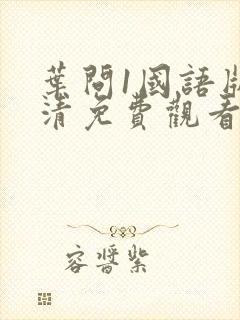 葉問1國語版
清免費觀看
容醬紫